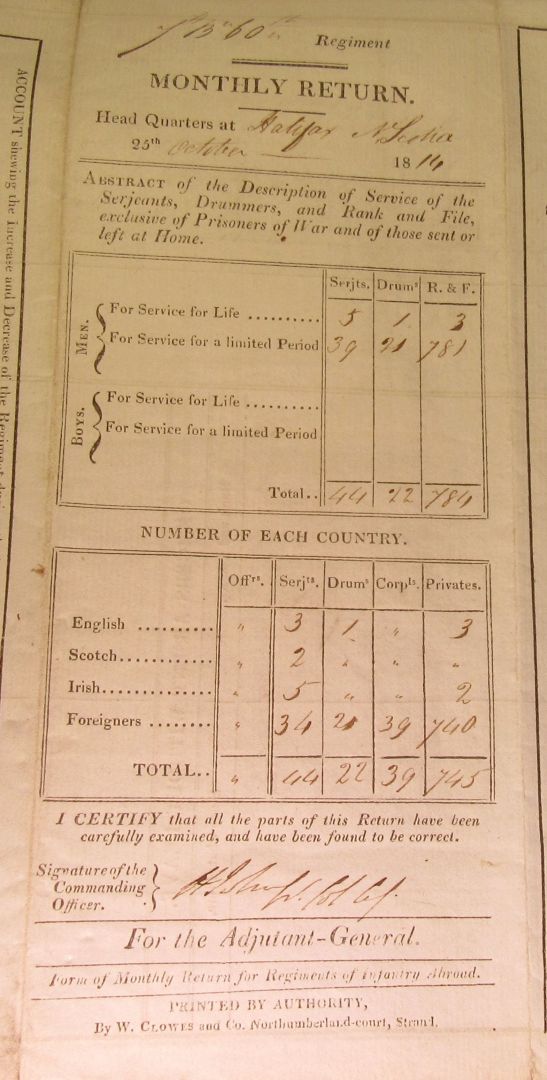 60th Regiment
MONTHLY RETURN.
Head Quarters at Halifax N. Scotia
25th October 1814
ABSTRACT of the Description of Service of the
Serjeants, Drummers, and Rank and File,
exclusive of Prisoners of War and of those sent or
left at Home.
Serjts. Drums R. & F.
MEN.
For Service for Life .......... 5 1 3
For Service for a limited Period 39 21 781
BOYS.
For Service for Life ..........
For Service for a limited Period
Total.. 44 22 784
NUMBER OF EACH COUNTRY.
Offrs. Serjts. Drums Corpls. Privates.
English .......... 3 1 " 3
Scotch............. " 2 " " "
Irish................ " 5 " " 2
Foreigners ........ " 34 21 39 740
TOTAL.. " 44 22 39 745
I CERTIFY that all the parts of this Return have been
carefully examined, and have been found to be correct.
Signature of the
Commanding
Officer.
For the Adjutant-General.
Form of Monthly Return for Regiments of Infantry Abroad.
PRINTED BY AUTHORITY,
By W. CLOWES and Co. Northumberland-court, Strand.
ACCOUNT shewing the increase and Decrease of the Regiment